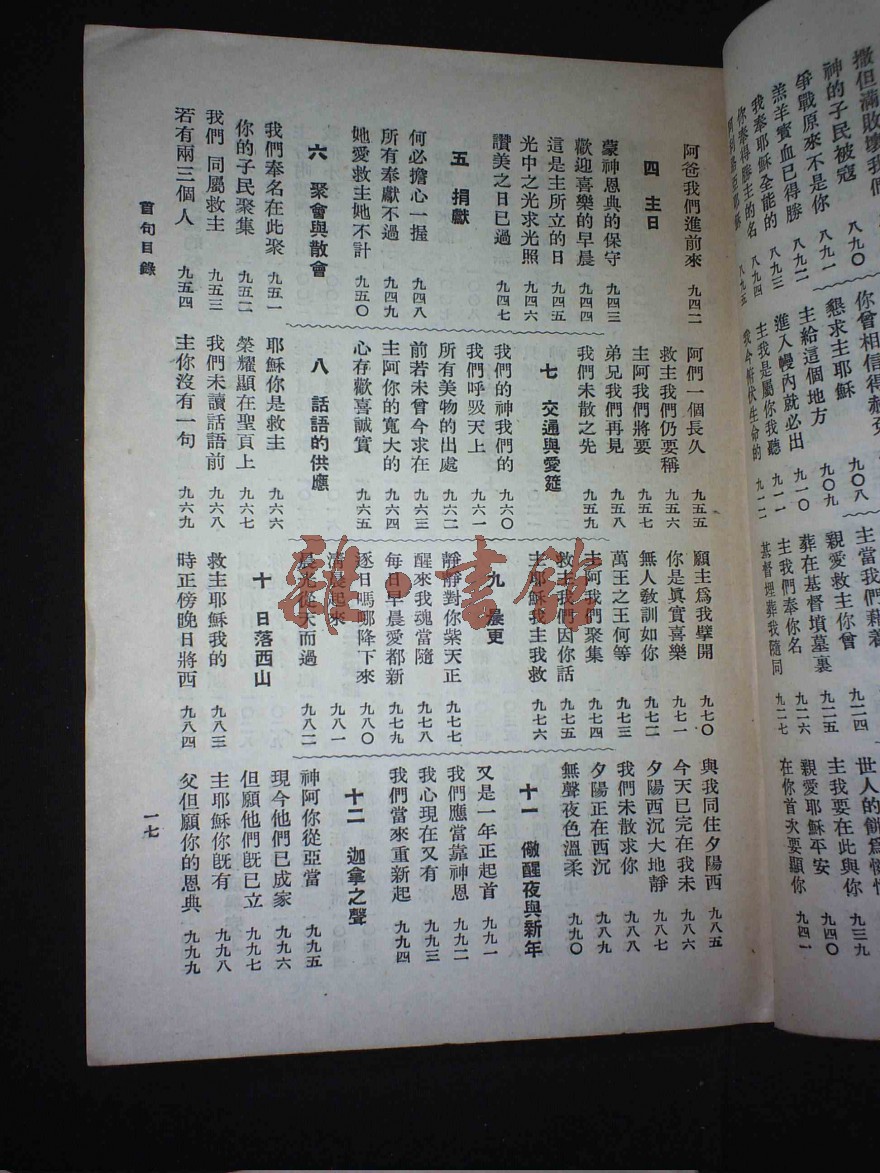 神的子民被寇 八九〇
爭戰原來不是你 八九一
羔羊寶血已得勝 八九二
我奉耶穌全能的 八九三
你奉得勝主的名 八九四
八九五
懇求主耶穌 九〇八
主給這個地方 九〇九
進入幔內就必出 九一〇
主我是屬你我聽 九一一
我今俯伏生命的 九一二
主當我們藉着
親愛救主你曾 九二四
葬在基督墳墓裏 九二五
主我們奉你名 九二六
基督埋葬我隨同 九二七
主我要在此與你 九三九
親愛耶穌平安 九四〇
在你首次要顯你 九四一
阿爸我們進前來 九四二
四 主日
蒙神恩典的保守 九四三
歡迎喜樂的早晨 九四四
這是主所立的日 九四五
光中之光求光照 九四六
讚美之日已過 九四七
五 捐獻
何必擔心一握 九四八
所有奉獻不過 九四九
她愛救主她不計 九五〇
六 聚會與散會
我們奉名在此聚 九五一
你的子民聚集 九五二
我們同屬救主 九五三
若有兩三個人 九五四
阿們一個長久 九五五
救主我們仍要稱 九五六
主阿我們將要 九五七
弟兄我們再見 九五八
我們未散之先 九五九
七 交通與愛筵
我們的神我們的 九六〇
我們呼吸天上 九六一
所有美物的出處 九六二
前若未曾今求在 九六三
主阿你的寬大的 九六四
心存歡喜誠實 九六五
八 話語的供應
耶穌你是救主 九六六
榮耀顯在聖頁上 九六七
我們未讀話語前 九六八
主你沒有一句 九六九
願主爲我擘開 九七〇
你是眞實喜樂 九七一
無人教訓如你 九七二
萬王之王何等 九七三
主阿我們聚集 九七四
救主我們因你話 九七五
主耶穌我主我救 九七六
九 晨更
靜靜對你紫天正 九七七
醒來我魂當隨 九七八
每日早晨愛都新 九七九
逐日嗎哪降下來 九八〇
清晨起來 九八一
晨光從天而過 九八二
十 日落西山
救主耶穌我的 九八三
時正傍晚日將西 九八四
與我同住夕陽西 九八五
今天已完在我未 九八六
夕陽西沉大地靜 九八七
我們未散求你 九八八
夕陽正在西沉 九八九
無聲夜色溫柔 九九〇
十一 儆醒夜與新年
又是一年正起首 九九一
我們應當靠神恩 九九二
我心現在又有 九九三
我們當來重新起 九九四
十二 迦拿之聲
神阿你從亞當 九九五
現今他們已成家 九九六
但願他們旣已立 九九七
主耶穌你旣有 九九八
父但願你的恩典 九九九
首句目錄
一七
雜·書館